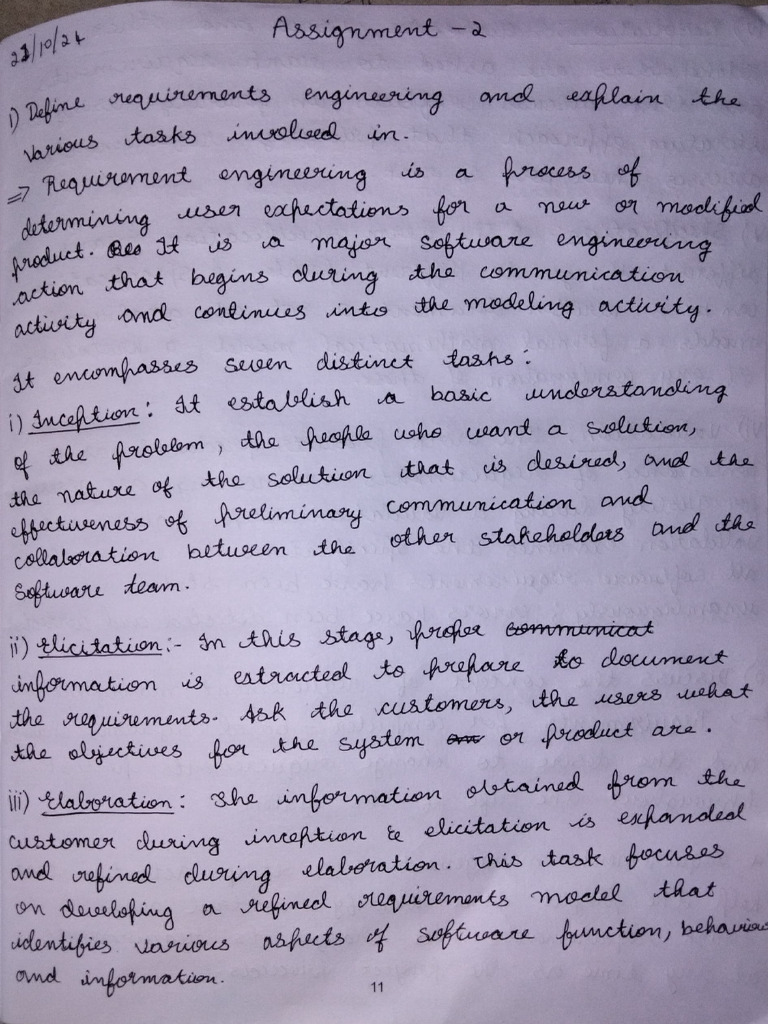 Assignment - 2
23/10/24
1) Define requirements engineering and explain the
various tasks involved in.
=> Requirement engineering is a process of
determining user expectations for a new or modified
product. It is a major software engineering
action that begins during the communication
activity and continues into the modeling activity.
It encompasses seven distinct tasks:
i) Inception: It establish a basic understanding
of the problem, the people who want a solution,
the nature of the solution that is desired, and the
effectiveness of preliminary communication and
collaboration between the other stakeholders and the
software team.
ii) Elicitation:- In this stage, proper communicat
information is extracted to prepare to document
the requirements. Ask the customers, the users what
the objectives for the system or product are.
iii) Elaboration: The information obtained from the
customer during inception & elicitation is expanded
and refined during elaboration. This task focuses
on developing a refined requirements model that
identifies various aspects of software function, behavior
and information.
11